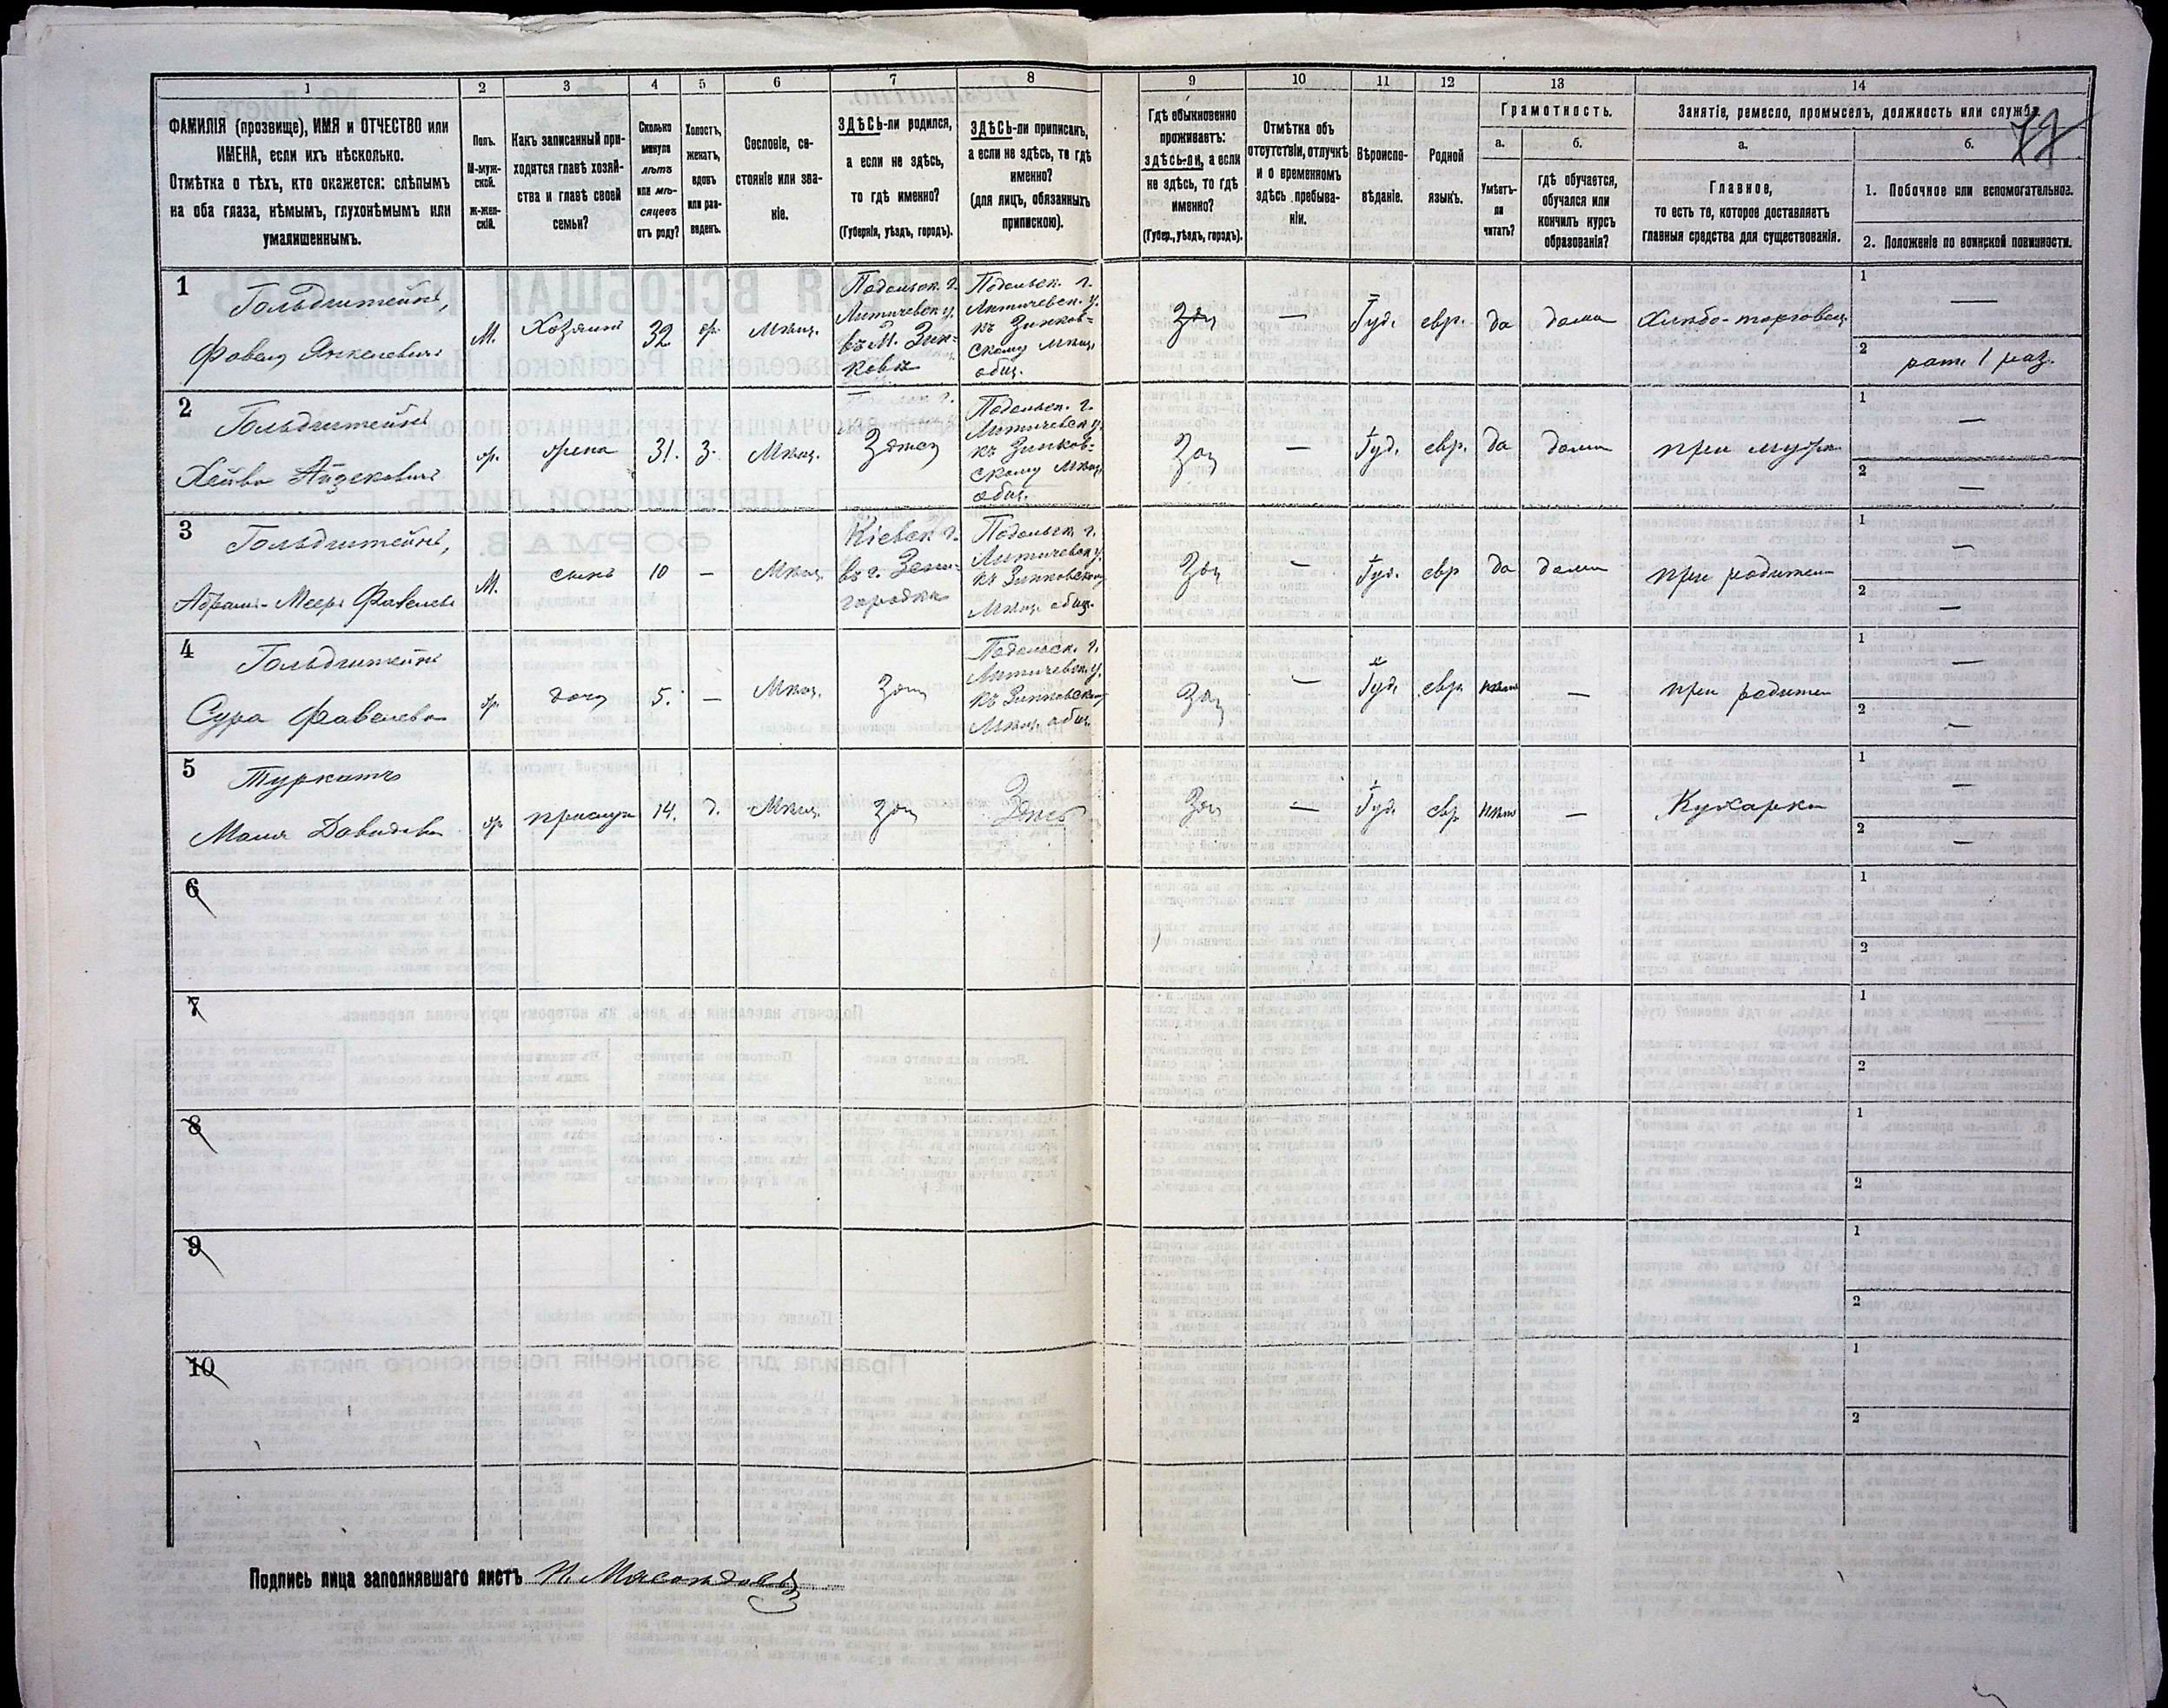 1
2
3
4
5
6
7
8
9
10
11
12
13
14
ФАМИЛІЯ (прозвище), ИМЯ и ОТЧЕСТВО или
ИМЕНА, если ихъ нѣсколько.
Отмѣтка о тѣхъ, кто окажется: слѣпымъ
на оба глаза, нѣмымъ, глухонѣмымъ или
умалишеннымъ.
Полъ.
М-муж-
ской.
Ж-жен-
скій.
Какъ записанный при-
ходится главѣ хозяй-
ства и главѣ своей
семьи?
Сколько
минуло
лѣтъ
или мѣ-
сяцевъ
отъ роду?
Холостъ,
женатъ,
вдовъ
или раз-
веденъ.
Сословіе, со-
стояніе или зва-
ніе.
ЗДѢСЬ-ли родился,
а если не здѣсь,
то гдѣ именно?
(Губернія, уѣздъ, городъ).
ЗДѢСЬ-ли приписанъ,
а если не здѣсь, то гдѣ
именно?
(для лицъ, обязанныхъ
припискою).
Гдѣ обыкновенно
проживаетъ:
здѣсь-ли, а если
не здѣсь, то гдѣ
именно?
(Губер., уѣздъ, городъ).
Отмѣтка объ
отсутствіи, отлучкѣ
и о временномъ
здѣсь пребыва-
ніи.
Вѣроиспо-
вѣданіе.
Родной
языкъ.
Грамотность.
а.
б.
Умѣетъ-
ли
читать?
гдѣ обучается,
обучался или
кончилъ курсъ
образованія?
Занятіе, ремесло, промыселъ, должность или служба.
а.
б.
Главное,
то есть то, которое доставляетъ
главныя средства для существованія.
1. Побочное или вспомогательное.
2. Положеніе по воинской повинности.
1
Гольдштейнъ,
Фавель Янкелевичъ
М.
Хозяинъ
32
ж.
Мѣщ.
Подольск. г.
Летичевск у.
въ М. Зинь-
ковѣ
Подольск. г.
Летичевск. у.
къ Зиньков-
скому мѣщ.
общ.
Зд
—
Іуд.
евр.
да
дома
Хлѣбо-торговец
1
—
2
рат. 1 раз.
2
Гольдштейнъ
Хейва Айзековичъ
ж.
жена
31.
З.
Мѣщ.
Здѣсь
Подольск. г.
Летичевск у.
къ Зиньков-
скому Мѣщ.
общ.
Зд
—
Іуд.
евр.
да
дома
при мужѣ
1
—
2
—
3
Гольдштейнъ,
Абрамъ-Мееръ Фавелевъ
М.
сынъ
10
—
Мѣщ.
Кіевск г.
въ г. Звени-
городкѣ
Подольск. г.
Летичевск у.
къ Зиньковскому
Мѣщ. общ.
Зд
—
Іуд.
евр
да
дома
при родител
1
—
2
—
4
Гольдштейнъ
Сура Фавелева
ж.
дочь
5.
—
Мѣщ.
Зд
Подольск. г.
Летичевск. у.
къ Зиньковскому
Мѣщ. общ.
Зд
—
Іуд.
евр.
нѣтъ
—
при родител
1
—
2
—
5
Давидова
ж.
прислуга
14.
д.
Мѣщ.
Зд
Здѣсь
Зд
—
Іуд.
евр
нѣтъ
—
Кухарка
1
—
2
—
6
1
2
7
1
2
8
1
2
9
1
2
10
1
2
Подпись лица заполнявшаго листъ